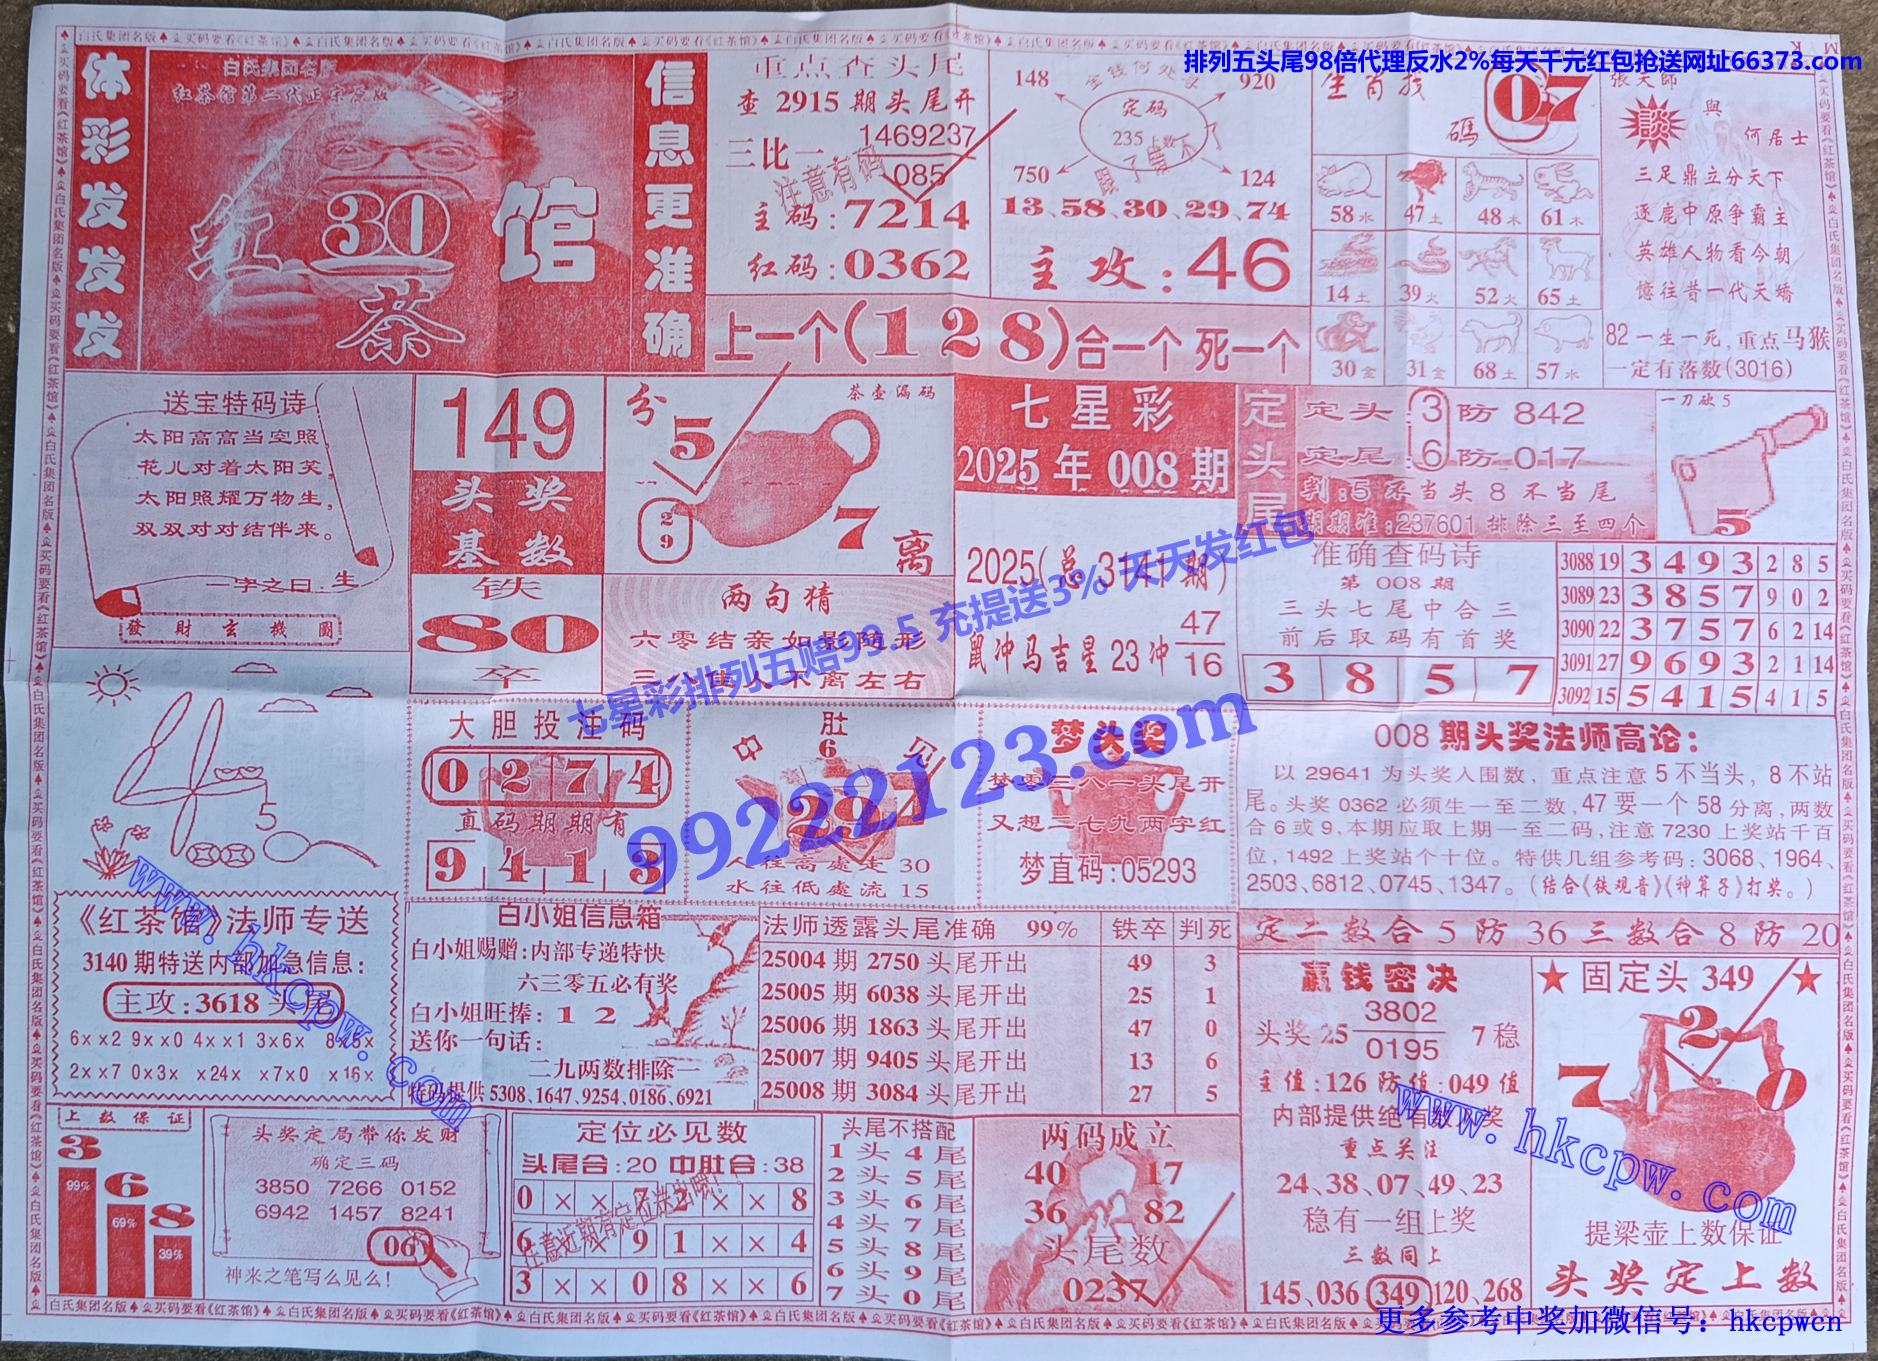 排列五头尾98倍代理反水2%每天千元红包抢送网址66373.com
体彩发发发
白氏集团名版
红茶馆第二代正宗原版
红 30 馆
茶
信息更准确
重点查头尾
查 2915 期头尾开
三比一 1469237
085
注意有码
主码:7214
红码:0362
148 金钱何处发 920
定码
235上数
750 124
13、58、30、29、74
主攻:46
上一个(128)合一个 死一个
生肖找
碼 07
58水 47土 48木 61木
14土 39火 52火 65土
30金 31金 68土 57水
張天師
談 與
何居士
三足鼎立分天下
逐鹿中原争霸主
英雄人物看今朝
憶往昔一代天嬌
82 一生一死,重点马猴
一定有落数(3016)
送宝特码诗
太阳高高当空照,
花儿对着太阳笑,
太阳照耀万物生,
双双对对结伴来。
一字之曰:生
發財玄機圖
149
头奖
基数
铁
80
卒
分 5 茶壶漏码
2
9 7 离
两句猜
六零结亲如影随形
三八佳人不离左右
七星彩
2025年 008期
2025(总3141期)
鼠冲马吉星 23 冲 47
16
定头尾
定头:3防 842
定尾:6防 017
判:5 不当头 8 不当尾
期期准:237601 排除三至四个
一刀砍 5
5
准确查码诗
第 008 期
三头七尾中合三
前后取码有首奖
3 8 5 7
3088 19 3 4 9 3 2 8 5
3089 23 3 8 5 7 9 0 2
3090 22 3 7 5 7 6 2 14
3091 27 9 6 9 3 2 1 14
3092 15 5 4 1 5 4 1 5
七星彩排列五赔99.5 充提送3% 天天发红包
99222123.com
5
大胆投注码
0 2 7 4
直码期期有
9 4 1 3
肚
6
297
人往高處走 30
水往低處流 15
梦头奖
梦零三八一头尾开
又想二七九两字红
梦直码:05293
008 期头奖法师高论:
以 29641 为头奖入围数,重点注意 5 不当头,8 不站
尾。头奖 0362 必须生一至二数,47 要一个 58 分离,两数
合 6 或 9,本期应取上期一至二码,注意 7230 上奖站千百
位,1492 上奖站个十位。特供几组参考码:3068、1964、
2503、6812、0745、1347。(结合《铁观音》《神算子》打奖。)
《红茶馆》法师专送
3140 期特送内部加急信息:
主攻:3618 头尾
6××2 9××0 4××1 3×6× 8×5×
2××7 0×3× ×24× ×7×0 ×16×
www.hkcpw.com
白小姐信息箱
白小姐赐赠:内部专递特快
六三零五必有奖
白小姐旺捧: 1 2
送你一句话:
二九两数排除一
特码提供 5308、1647、9254、0186、6921
法师透露头尾准确 99% 铁卒 判死
25004 期 2750 头尾开出 49 3
25005 期 6038 头尾开出 25 1
25006 期 1863 头尾开出 47 0
25007 期 9405 头尾开出 13 6
25008 期 3084 头尾开出 27 5
定二数合 5 防 36 三数合 8 防 20
赢钱密决
头奖 25 3802
0195 7 稳
主值:126 防值:049 值
内部提供绝有数中奖
重点关注
24、38、07、49、23
稳有一组上奖
三数同上
145、036 349 120、268
★ 固定头 349 ★
2
7 0
提梁壶上数保证
头奖定上数
www.hkcpw.com
上数保证
3 6 8
99% 69% 39%
头奖定局带你发财
确定三码
3850 7266 0152
6942 1457 8241
06
神来之笔写么见么!
定位必见数
头尾合:20 中肚合:38
0 × × 7 2 × × 8
6 × × 9 1 × × 4
3 × × 0 8 × × 6
注意近期有定位送出哦!
头尾不搭配
1 头 4 尾
2 头 5 尾
3 头 6 尾
4 头 7 尾
5 头 8 尾
6 头 9 尾
7 头 0 尾
两码成立
40 17
36 82
头尾数
0237
白氏集团名版♠买码要看《红茶馆》♠白氏集团名版♠买码要看《红茶馆》
更多参考中奖加微信号:hkcpwcn